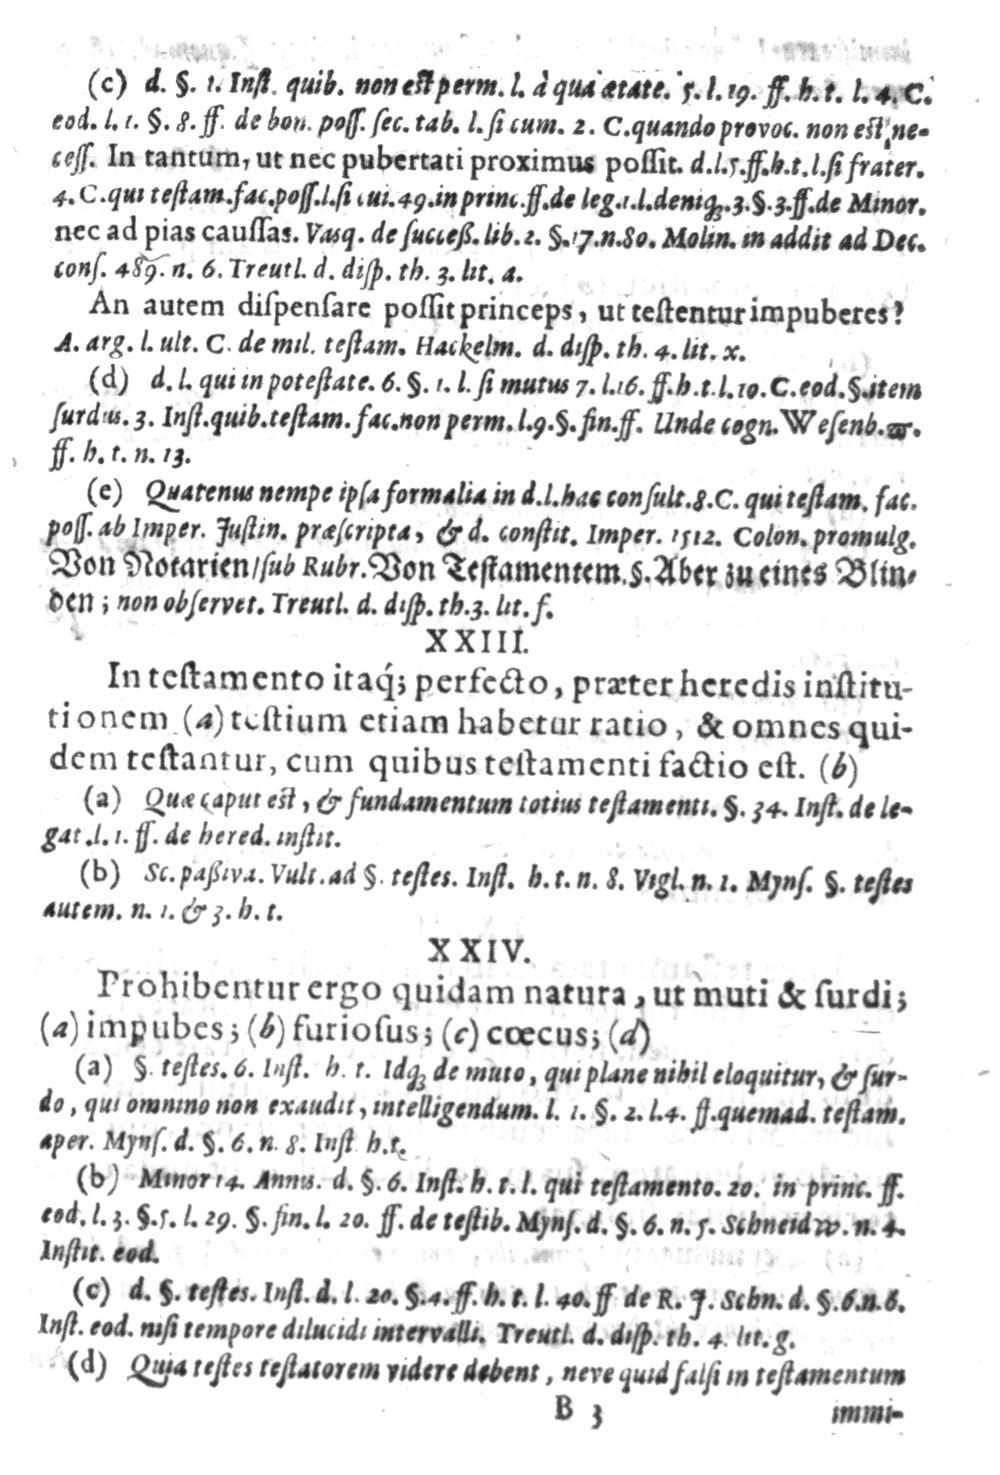 (c) d. §. 1. Inst. quib. non est perm. l. à qua ætate. 5. l. 19. ff. h. t. l. 4. C.
eod. l. 1. §. 8. ff. de bon. poss. sec. tab. l. si cum. 2. C. quando provoc. non est ne-
cess. In tantum, ut nec pubertati proximus possit. d. l. 5. ff. h. t. l. si frater.
4. C. qui testam. fac. poss. l. si cui. 49. in princ. ff. de leg. 1. l. deniq;. 3. §. 3. ff. de Minor.
nec ad pias caussas. Vasq. de success. lib. 2. §. 17. n. 80. Molin. in addit ad Dec.
cons. 489. n. 6. Treutl. d. disp. th. 3. lit. a.
An autem dispensare possit princeps, ut testentur impuberes?
A. arg. l. ult. C. de mil. testam. Hackelm. d. disp. th. 4. lit. x.
(d) d. l. qui in potestate. 6. §. 1. l. si mutus 7. l. 16. ff. h. t. l. 10. C. eod. §. item
surdus. 3. Inst. quib. testam. fac. non perm. l. 9. §. fin. ff. Unde cogn. Wesenb. ϖ.
ff. h. t. n. 13.
(e) Quatenus nempe ipsa formalia in d. l. hac consult. 8. C. qui testam. fac.
poss. ab Imper. Justin. præscripta, & d. constit. Imper. 1512. Colon. promulg.
Von Notarien/ sub Rubr. Von Testamentem. §. Aber zu eines Blin-
den; non observet. Treutl. d. disp. th. 3. lit. f.
XXIII.
In testamento itaq́; perfecto, præter heredis institu-
tionem (a) testium etiam habetur ratio, & omnes qui-
dem testantur, cum quibus testamenti factio est. (b)
(a) Quæ caput est, & fundamentum totius testamenti. §. 34. Inst. de le-
gat. l. 1. ff. de hered. instit.
(b) Sc. passiva. Vult. ad §. testes. Inst. h. t. n. 8. Vigl. n. 1. Myns. §. testes
autem. n. 1. & 3. h. t.
XXIV.
Prohibentur ergo quidam natura, ut muti & surdi;
(a) impubes; (b) furiosus; (c) cœcus; (d)
(a) §. testes. 6. Inst. h. t. Idq; de muto, qui plane nihil eloquitur, & sur-
do, qui omnino non exaudit, intelligendum. l. 1. §. 2. l. 4. ff. quemad. testam.
aper. Myns. d. §. 6. n. 8. Inst h. t.
(b) Minor 14. Annis. d. §. 6. Inst. h. t. l. qui testamento. 20. in princ. ff.
eod. l. 3. §. 5. l. 29. §. fin. l. 20. ff. de testib. Myns. d. §. 6. n. 5. Schneidw. n. 4.
Instit. eod.
(c) d. §. testes. Inst. d. l. 20. §. 4. ff. h. t. l. 40. ff de R. J. Schn. d. §. 6. n. 6.
Inst. eod. nisi tempore dilucidi intervalli. Treutl. d. disp. th. 4. lit. g.
(d) Quia testes testatorem videre debent, neve quid falsi in testamentum
B 3
immi-